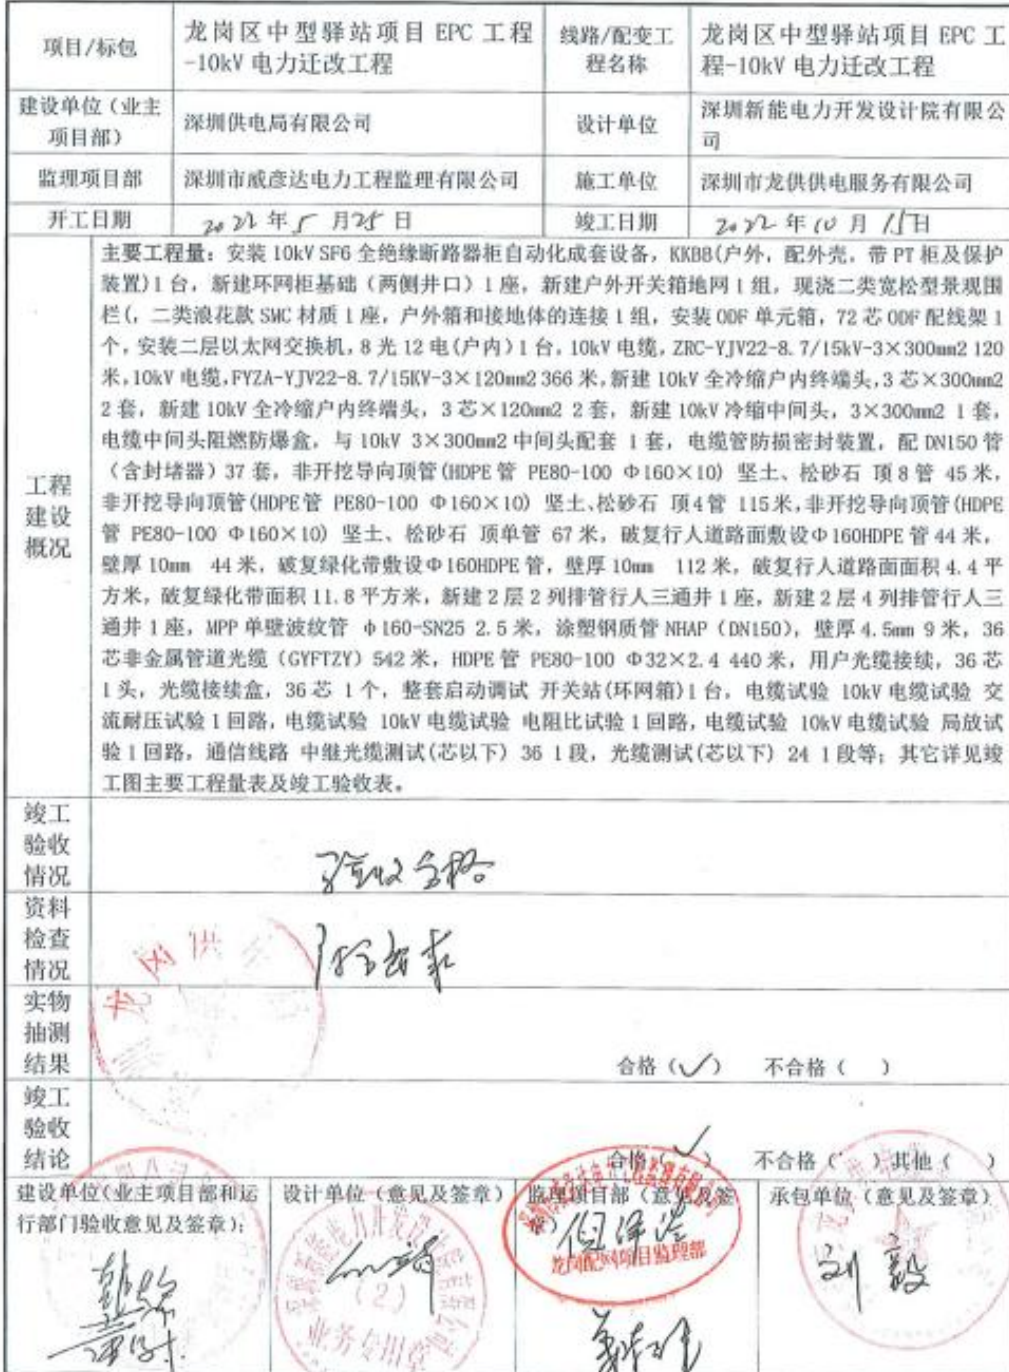 项目/标包
龙岗区中型驿站项目 EPC 工程
-10kV 电力迁改工程
线路/配变工
程名称
龙岗区中型驿站项目 EPC 工
程-10kV 电力迁改工程
建设单位（业主
项目部）
深圳供电局有限公司
设计单位
深圳新能电力开发设计院有限公
司
监理项目部
深圳市威彦达电力工程监理有限公司
施工单位
深圳市龙供供电服务有限公司
开工日期
2022 年 5 月 25 日
竣工日期
2022 年 10 月 15 日
工程
建设
概况
主要工程量：安装 10kV SF6 全绝缘断路器柜自动化成套设备，KKBB(户外，配外壳，带 PT 柜及保护
装置)1 台，新建环网柜基础（两侧井口）1 座，新建户外开关箱地网 1 组，现浇二类宽松型景观围
栏(，二类浪花款 SMC 材质 1 座，户外箱和接地体的连接 1 组，安装 ODF 单元箱，72 芯 ODF 配线架 1
个，安装二层以太网交换机，8 光 12 电(户内) 1 台，10kV 电缆，ZRC-YJV22-8.7/15kV-3×300mm2 120
米，10kV 电缆，FYZA-YJV22-8.7/15KV-3×120mm2 366 米，新建 10kV 全冷缩户内终端头，3 芯×300mm2
2 套，新建 10kV 全冷缩户内终端头，3 芯×120mm2 2 套，新建 10kV 冷缩中间头，3×300mm2 1 套，
电缆中间头阻燃防爆盒，与 10kV 3×300mm2 中间头配套 1 套，电缆管防损密封装置，配 DN150 管
（含封堵器）37 套，非开挖导向顶管(HDPE 管 PE80-100 Φ160×10) 坚土、松砂石 顶 8 管 45 米，
非开挖导向顶管(HDPE 管 PE80-100 Φ160×10) 坚土、松砂石 顶 4 管 115 米，非开挖导向顶管(HDPE
管 PE80-100 Φ160×10) 坚土、松砂石 顶单管 67 米，破复行人道路面敷设Φ160HDPE 管 44 米，
壁厚 10mm 44 米，破复绿化带敷设Φ160HDPE 管，壁厚 10mm 112 米，破复行人道路面面积 4.4 平
方米，破复绿化带面积 11.8 平方米，新建 2 层 2 列排管行人三通井 1 座，新建 2 层 4 列排管行人三
通井 1 座，MPP 单壁波纹管 φ160-SN25 2.5 米，涂塑钢质管 NHAP（DN150），壁厚 4.5mm 9 米，36
芯非金属管道光缆（GYFTZY）542 米，HDPE 管 PE80-100 Φ32×2.4 440 米，用户光缆接续，36 芯
1 头，光缆接续盒，36 芯 1 个，整套启动调试 开关站(环网箱)1 台，电缆试验 10kV 电缆试验 交
流耐压试验 1 回路，电缆试验 10kV 电缆试验 电阻比试验 1 回路，电缆试验 10kV 电缆试验 局放试
验 1 回路，通信线路 中继光缆测试(芯以下) 36 1 段，光缆测试(芯以下) 24 1 段等；其它详见竣
工图主要工程量表及竣工验收表。
竣工
验收
情况
验收合格
资料
检查
情况
符合要求
龙岗供
实物
抽测
结果
合格（✓） 不合格（ ）
竣工
验收
结论
合格（✓） 不合格（ ）其他（ ）
建设单位(业主项目部和运
行部门验收意见及签章)：
设计单位（意见及签章）
（2）
业务专用章
监理项目部（意见及签
章）
龙岗配网项目监理部
承包单位（意见及签章）
刘毅